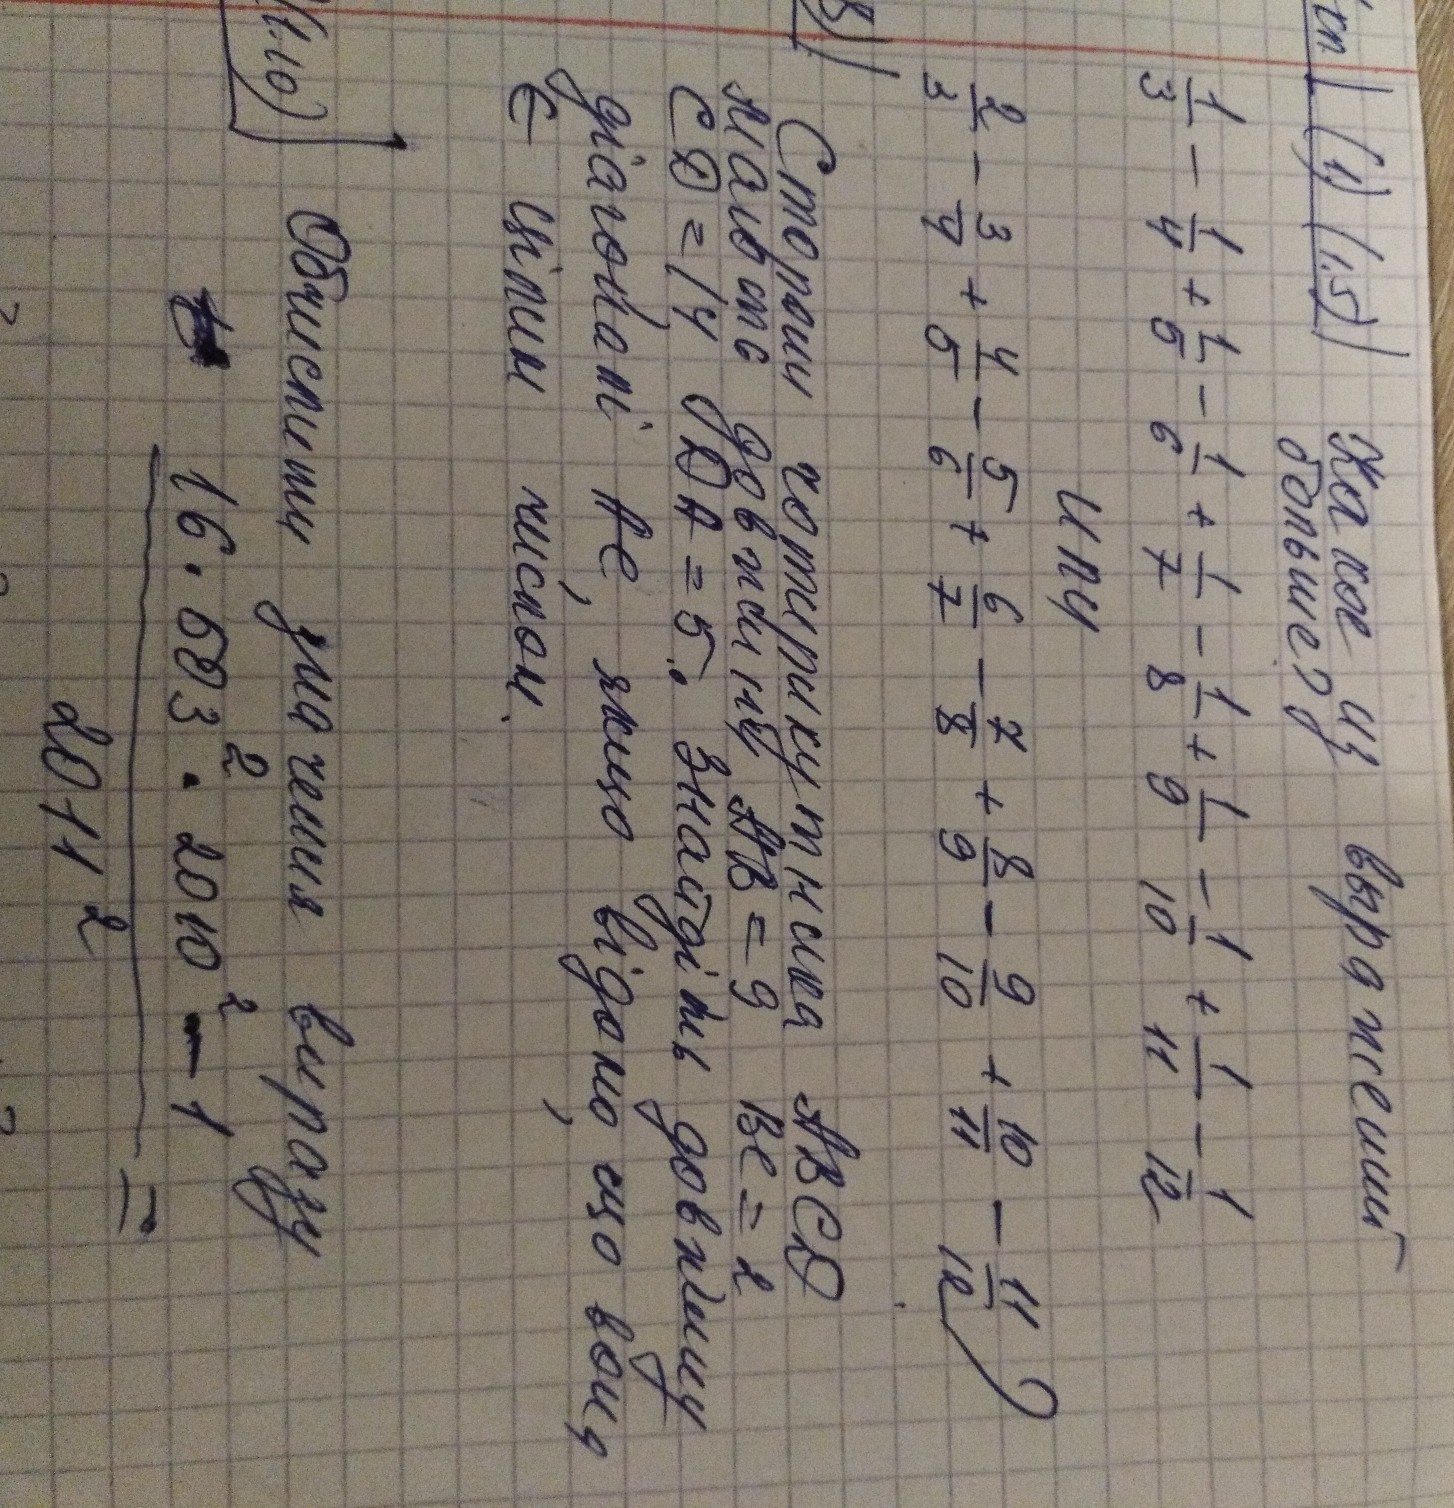 (1) (1.5) Какое из выражений
больше?
1/3 - 1/4 + 1/5 - 1/6 + 1/7 - 1/8 + 1/9 - 1/10 + 1/11 - 1/12
или
2/3 - 3/4 + 4/5 - 5/6 + 6/7 - 7/8 + 8/9 - 9/10 + 10/11 - 11/12
Сторони чотирикутника ABCD
мають довжину AB = 9 BC = 2
CD = 14 DA = 5. Знайдіть довжину
діагоналі AC, якщо відомо, що вона
є цілим числом.
(1.10) Обчислити значення виразу
16 · 503² · 2010² - 1
2011² =